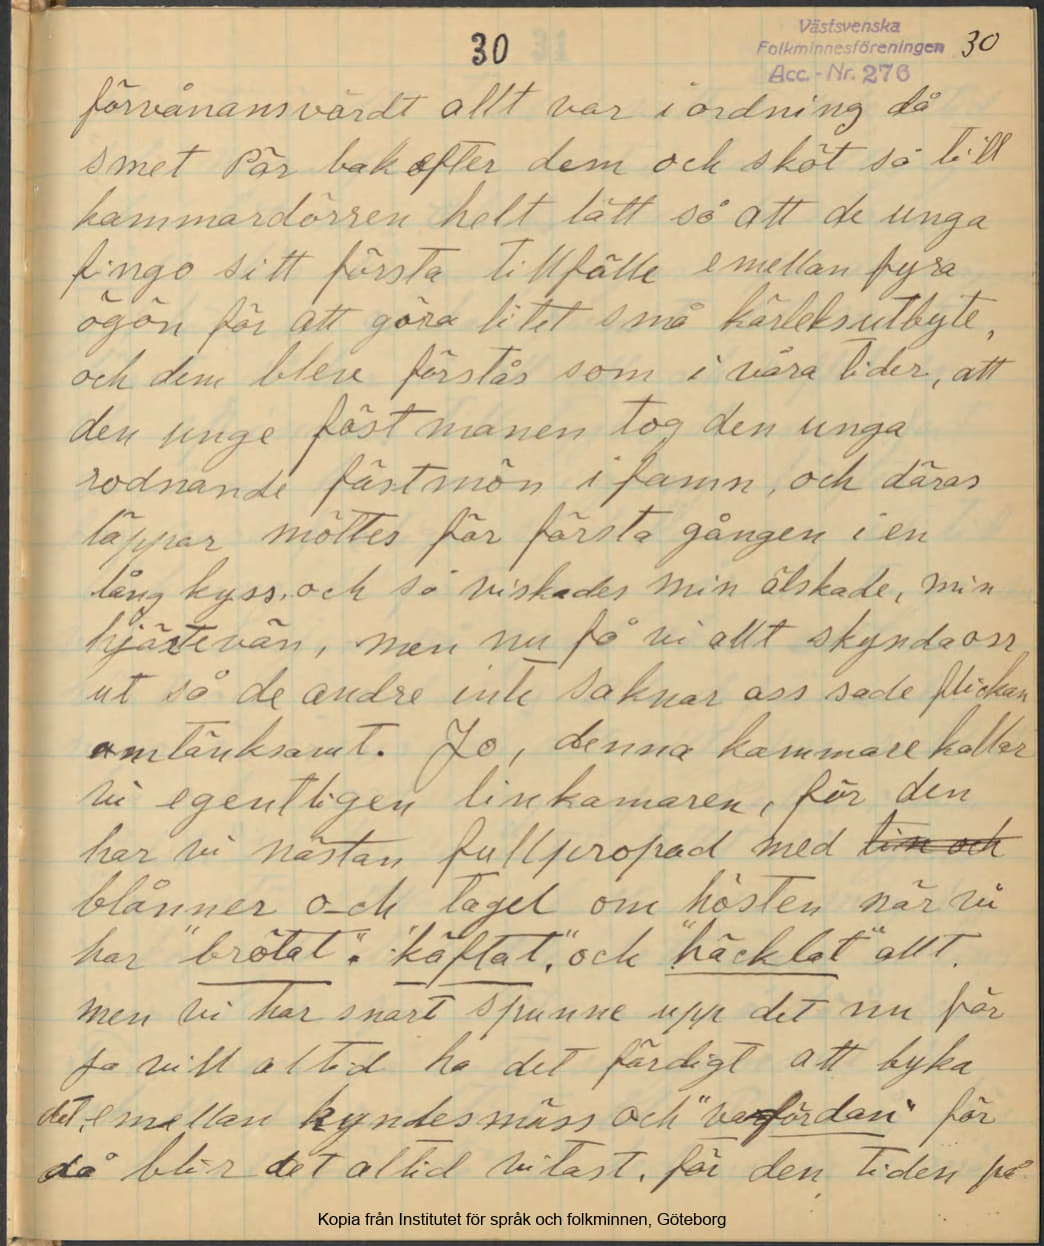 30
Västsvenska
Folkminnesföreningen
Acc.-Nr. 276
30
förvånansvärdt allt var i ordning då
smet Pär bakefter dem och sköt så till
kammardörren helt lätt så att de unga
fingo sitt första tillfälle emellan fyra
ögon för att göra litet små kärleksutbyte,
och dem blev förstås som i våra tider, att
den unge fästmanen tog den unga
rodnande fästmön i famn, och däras
läppar möttes för första gången i en
lång kyss. och så viskades min älskade, min
hjärtevän, men nu få vi allt skynda oss
ut så de andre inte saknar oss sade flickan
omtänksamt. Jo, denna kammare kallar
vi egentligen linkamaren, för den
har vi nästan fullpropad med lin och
blånner och taget om hösten när vi
har "brötat". "käftat", och "häcklat" allt.
men vi har snart spunne upp det nu för
ja vill altid ha det färdigt att byka
det, emellan kyndesmäss och "varfördan" för
då blir det altid vitast. för den tiden på
Kopia från Institutet för språk och folkminnen, Göteborg